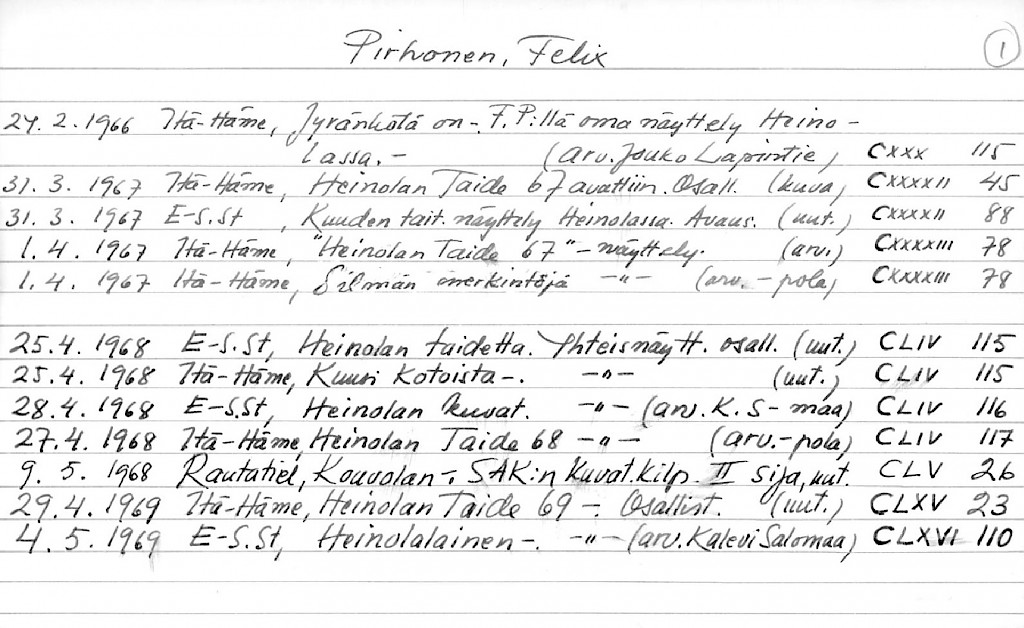 Pirhonen, Felix
1
24. 2. 1966 Itä-Häme, Jyränkötä on-. F.P:llä oma näyttely Heino-
lassa.- (arv. Jouko Lapintie) CXXX 115
31. 3. 1967 Itä-Häme, Heinolan Taide 67 avattiin. Osall. (kuva) CXXXXII 45
31. 3. 1967 E-S.St , Kuuden tait. näyttely Heinolassa. Avaus. (uut.) CXXXXII 88
1. 4. 1967 Itä-Häme, "Heinolan Taide 67"-näyttely. (arv.) CXXXXIII 78
1. 4. 1967 Itä-Häme, Silmän merkintöjä -"- (arv. -pola) CXXXXIII 78
25. 4. 1968 E-S.St, Heinolan taidetta. Yhteisnäytt. osall. (uut.) CLIV 115
25. 4. 1968 Itä-Häme, Kuusi kotoista-. -"- (uut.) CLIV 115
28. 4. 1968 E-S.St, Heinolan kuvat. -"- (arv. K. S-maa) CLIV 116
27. 4. 1968 Itä-Häme, Heinolan Taide 68 -"- (arv.-pola) CLIV 117
9. 5. 1968 Rautatiel, Kouvolan-. SAK:n kuvat.kilp. II sija, uut. CLV 26
29. 4. 1969 Itä-Häme, Heinolan Taide 69 -. Osallist. (uut.) CLXV 23
4. 5. 1969 E-S.St, Heinolalainen-. -"- (arv. Kalevi Salomaa) CLXVI 110